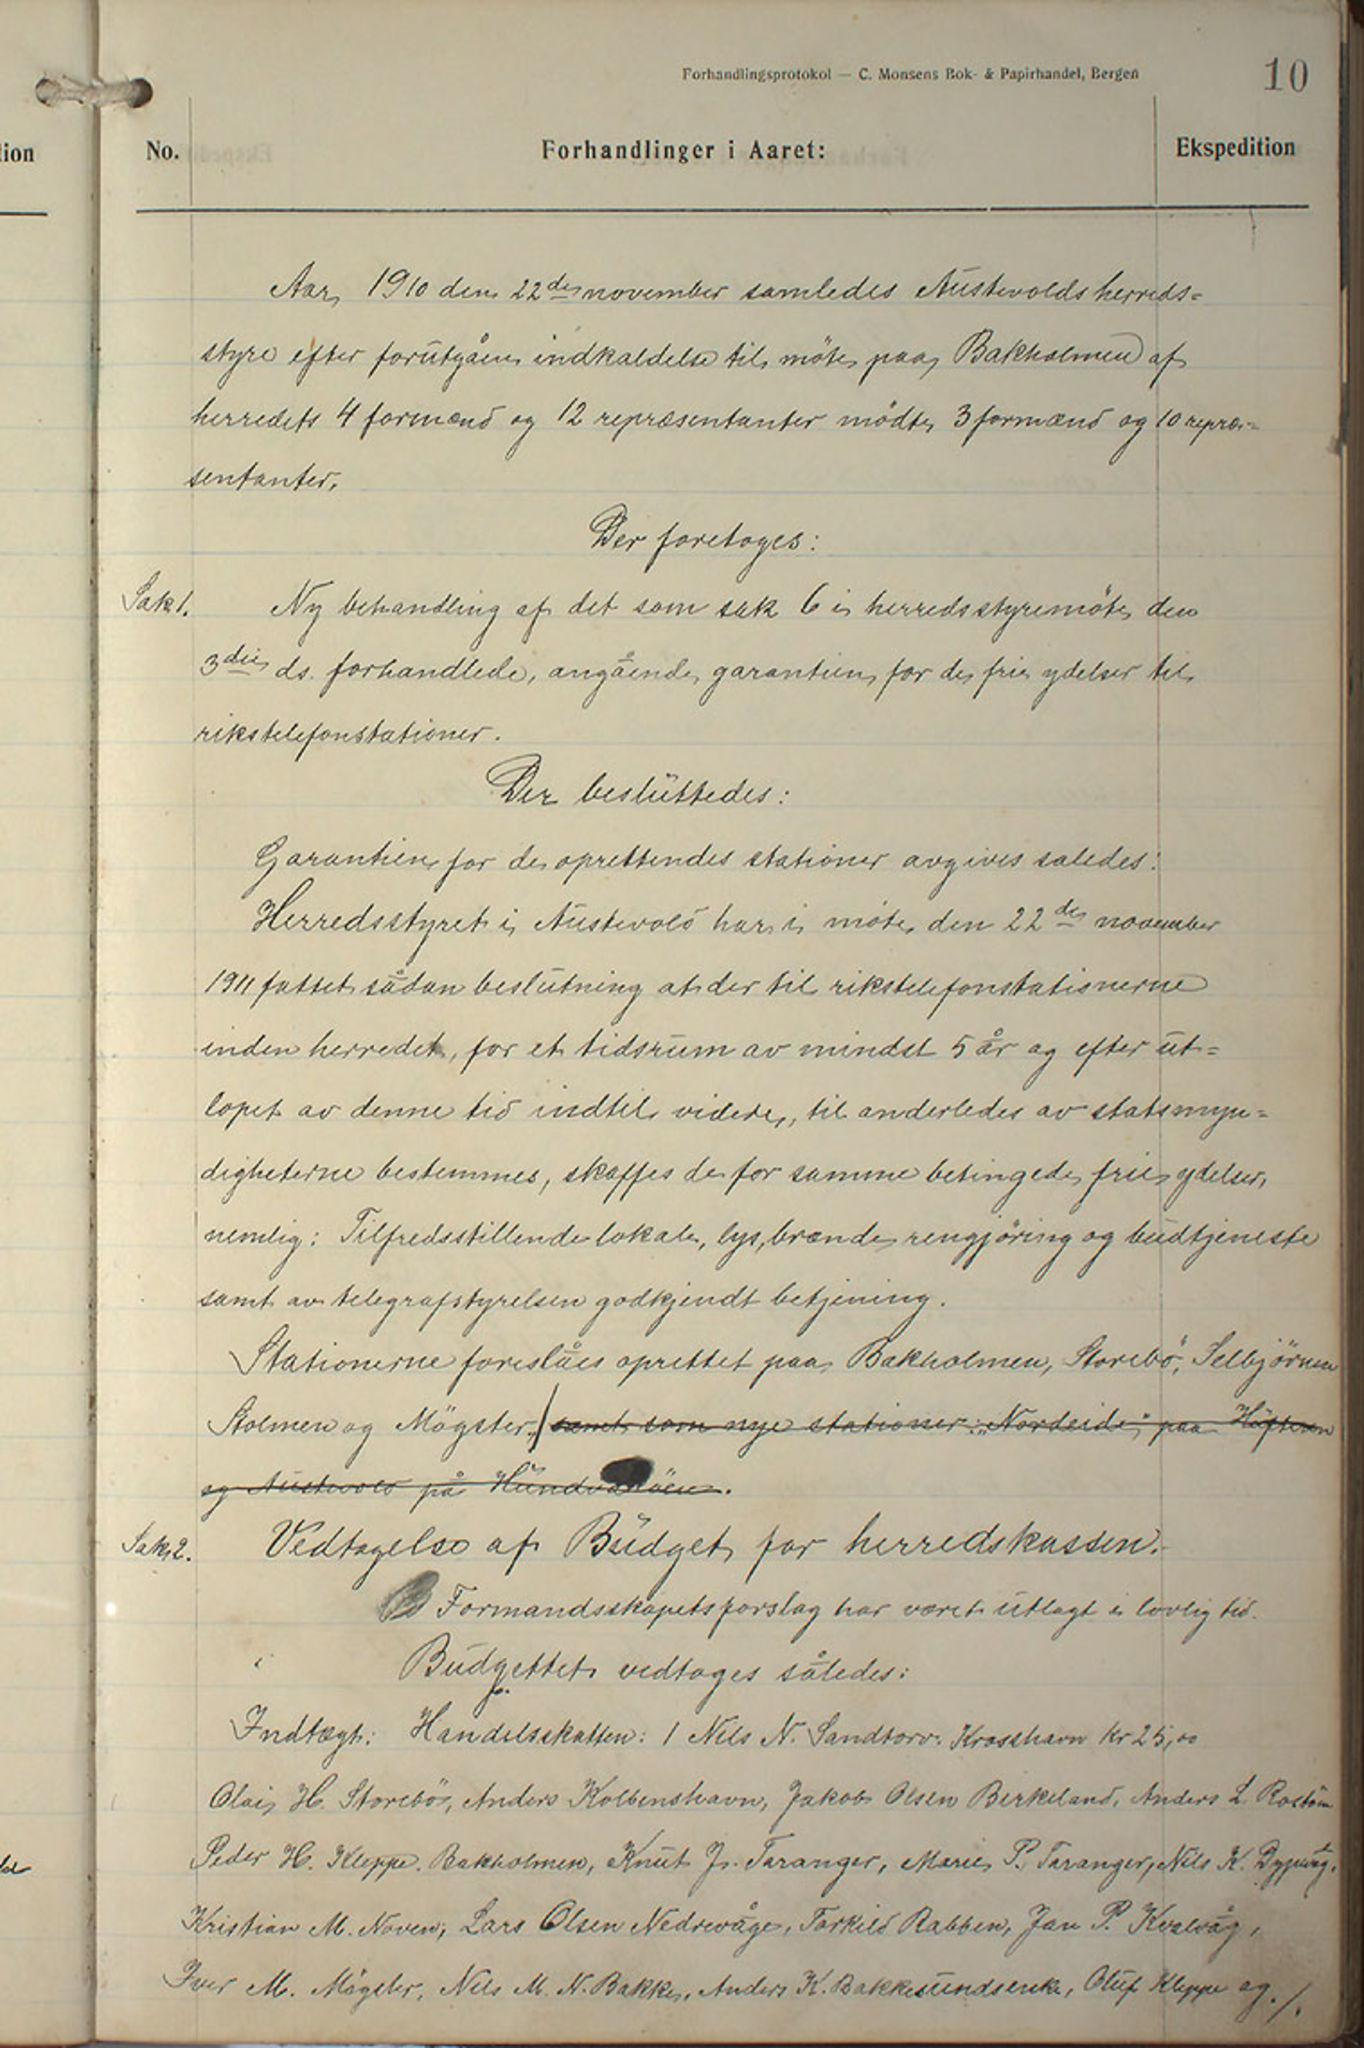 Forhandlingsprotokol — C. Monsens Bok- & Papirhandel, Bergen
10
tion
No.
Forhandlinger i Aaret:
Ekspedition
Aar 1910 den 22de november samledes Austevolds herreds=
styre efter forutgåen indkaldelse til möte paa Bakholmen af
herredets 4 formænd og 12 repræsentanter mödte 3 formænd og 10 repræ=
sentanter.
Der foretoges:
Sak 1. Ny behandling af det som sak 6 i herredsstyremöte den
3die ds. forhandlede, angående garantien for de frie ydelser til
rikstelefonstationer.
Der besluttedes:
Garantien for de oprettendes stationer avgives saledes:
Herredsstyret i Austevold har i möte den 22de november
1911 fattet sådan beslutning at der til rikstelefonstationerne
inden herredet, for et tidsrum av mindst 5 år og efter ut=
lopet av denne tid indtil videre, til anderledes av statsmyn=
digheterne bestemmes, skaffes de for samme betingede frie ydelser,
nemlig: Tilfredsstillende lokale, lys, brænde, rengjöring og budtjeneste
samt av telegrafstyrelsen godkjendt betjening.
Stationerne foreslåes oprettet paa Bakholmen, Storebö, Selbjörnen
Stolmen og Mögster, samt som nye stationer: "Nordeide" paa Huftern
og Austevold på Hundvaköen.
Sak 2. Vedtagelse af Budget for herredskassen.
Formandsskapets forslag har været utlagt i lovlig tid.
Budgettet vedtages således:
Indtægt: Handelsskatten: 1 Nils N. Sandtorv. Krosshavn kr 25,00
Olai H. Storebö, Anders Kolbenshavn, Jakob Olsen Birkeland, Anders L. Rostöen
Peder H. Kleppe. Bakholmen, Knut J. Taranger, Marie P. Taranger, Nils K. Dypvåg.
Kristian M. Noven, Lars Olsen Nedrevåge, Torkild Rabben, Jan P. Kvalvåg,
Iver M. Mögster, Nils M. N. Bakke, Anders K. Bakkesund, Oluf Kleppe og ./.